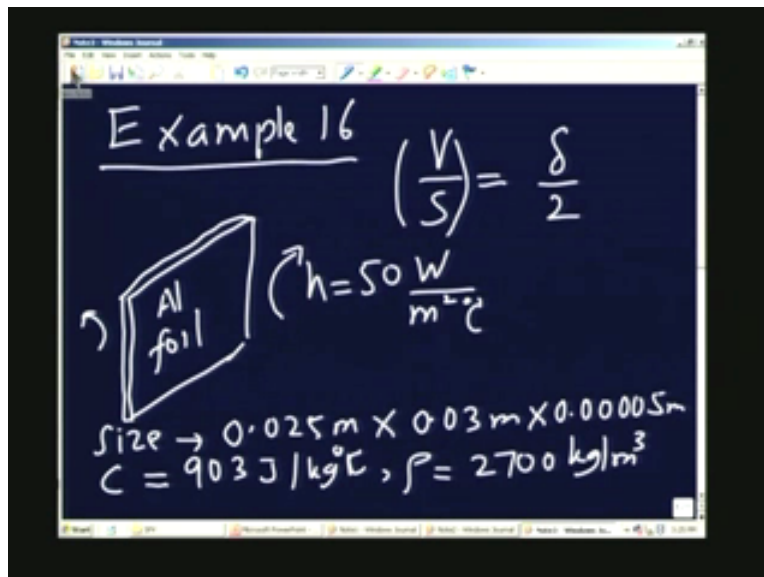 Note1 - Windows Journal
File Edit View Insert Actions Tools Help
Page width
Example 16
(V/S) = δ/2
Al
foil
h = 50 W/m²°C
Size → 0.025m X 0.03m X 0.00005m
C = 903 J/kg°C, ρ = 2700 kg/m³
Start
Microsoft PowerPoint -